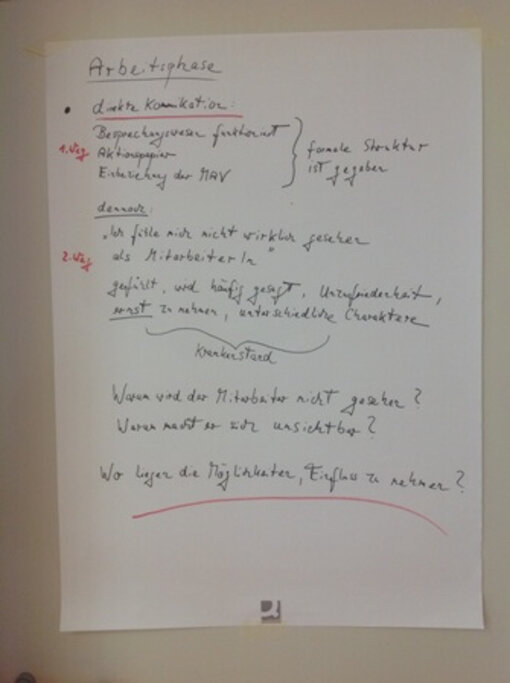 Arbeitsphase
• direkte Kommikation:
Besprechungswesen funktioniert
1. Weg Aktionspapier
Einbeziehung der MAV
formale Struktur
ist gegeben
dennoch:
„Ich fühle mich nicht wirklich gesehen
2. Weg als MitarbeiterIn"
gefühlt, wird häufig gesagt, Unzufriedenheit,
ernst zu nehmen, unterschiedliche Charaktere
Krankenstand
Warum wird der Mitarbeiter nicht gesehen?
Warum macht er sich unsichtbar?
Wo liegen die Möglichkeiten, Einfluss zu nehmen?